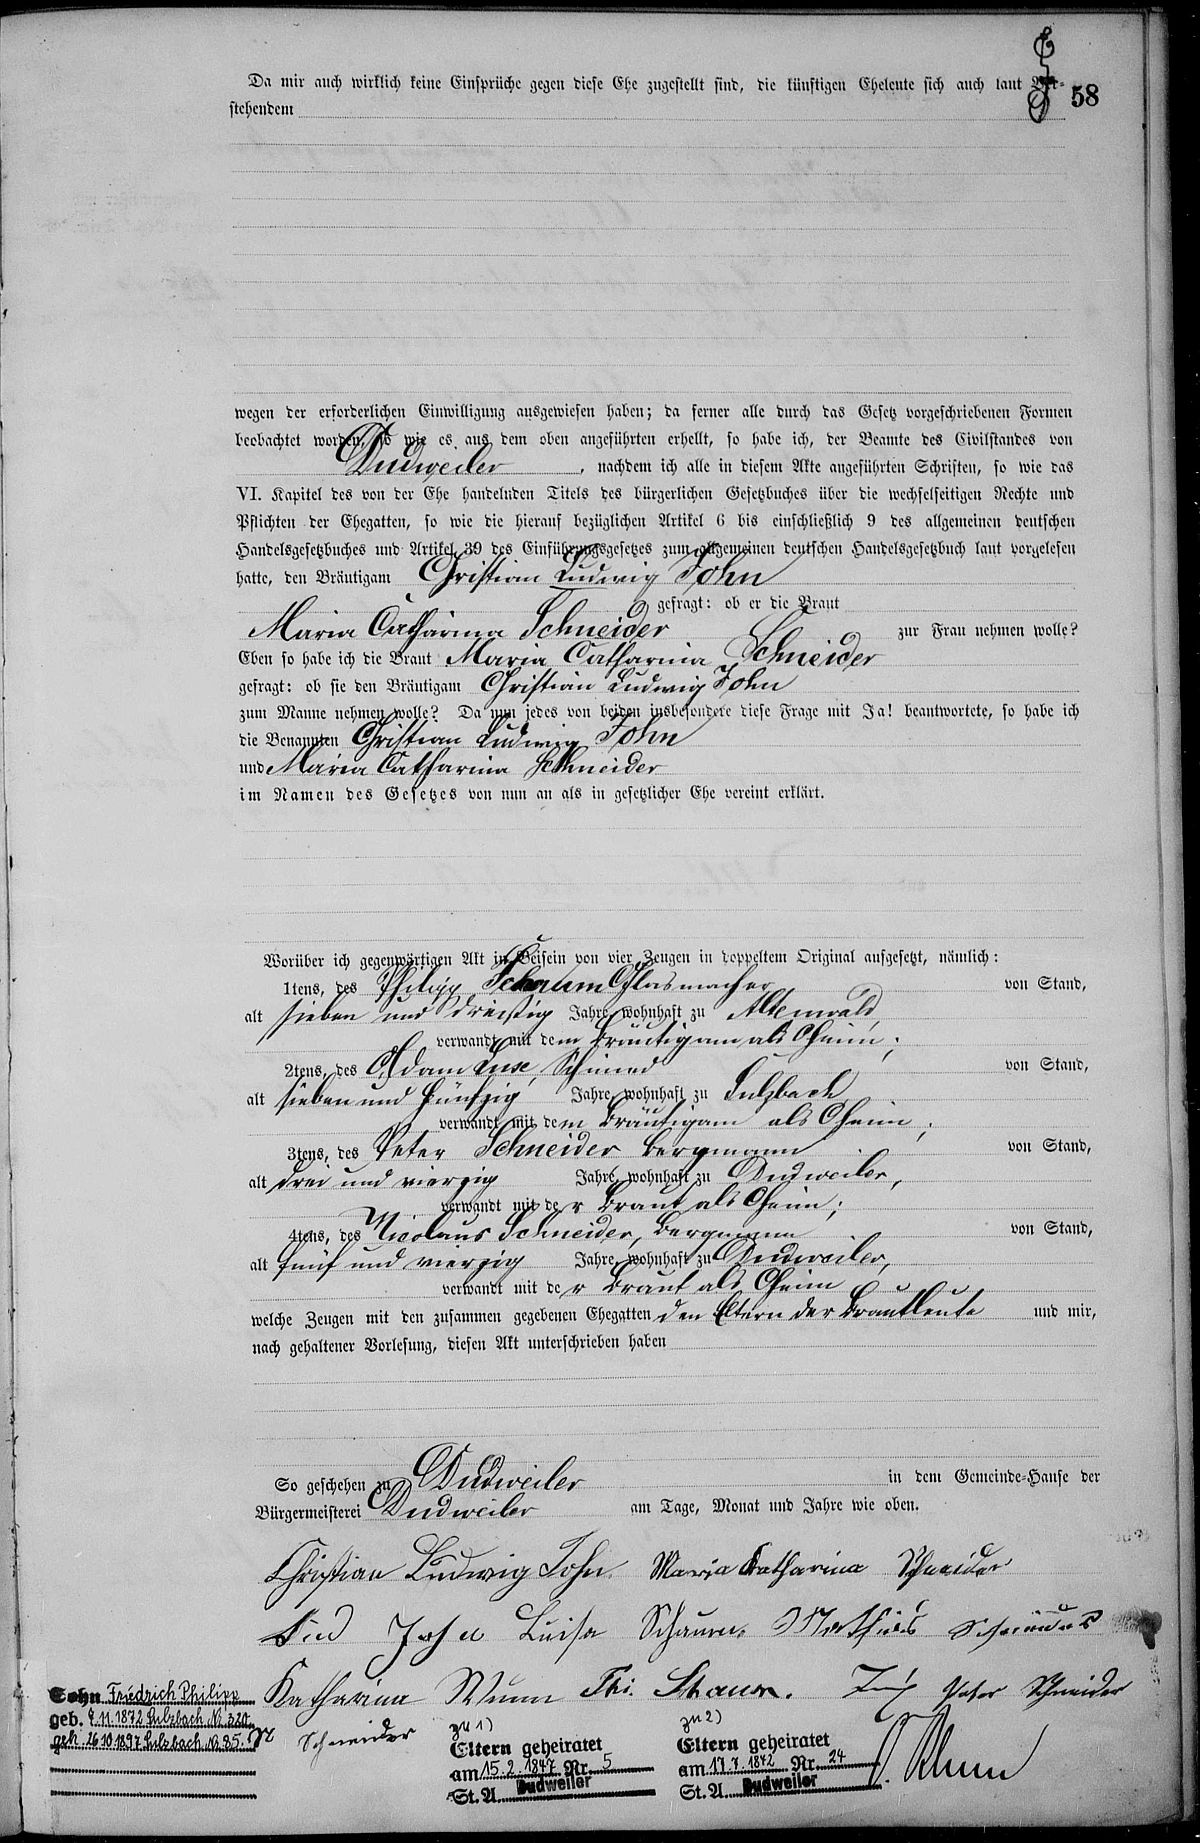 58
Da mir auch wirklich keine Einsprüche gegen diese Ehe zugestellt sind, die künftigen Eheleute sich auch laut Vor-
stehendem
wegen der erforderlichen Einwilligung ausgewiesen haben; da ferner alle durch das Gesetz vorgeschriebenen Formen
beobachtet worden, so wie es aus dem oben angeführten erhellt, so habe ich, der Beamte des Civilstandes von
Dudweiler, nachdem ich alle in diesem Akte angeführten Schriften, so wie das
VI. Kapitel des von der Ehe handelnden Titels des bürgerlichen Gesetzbuches über die wechselseitigen Rechte und
Pflichten der Ehegatten, so wie die hierauf bezüglichen Artikel 6 bis einschließlich 9 des allgemeinen deutschen
Handelsgesetzbuches und Artikel 39 des Einführungsgesetzes zum allgemeinen deutschen Handelsgesetzbuch laut vorgelesen
hatte, den Bräutigam Christian Ludwig John
gefragt: ob er die Braut
Maria Catharina Schneider zur Frau nehmen wolle?
Eben so habe ich die Braut Maria Catharina Schneider
gefragt: ob sie den Bräutigam Christian Ludwig John
zum Manne nehmen wolle? Da nun jedes von beiden insbesondere diese Frage mit Ja! beantwortete, so habe ich
die Benannten Christian Ludwig John
und Maria Catharina Schneider
im Namen des Gesetzes von nun an als in gesetzlicher Ehe vereint erklärt.
Worüber ich gegenwärtigen Akt in Beisein von vier Zeugen in doppeltem Original aufgesetzt, nämlich:
1tens, des Philipp Schaum Glasmacher von Stand,
alt sieben und dreißig Jahre, wohnhaft zu Altenwald,
verwandt mit dem Bräutigam als Oheim;
2tens, des Adam Luxe, Schmied von Stand,
alt sieben und fünfzig Jahre, wohnhaft zu Sulzbach
verwandt mit dem Bräutigam als Oheim;
3tens, des Peter Schneider Bergmann von Stand,
alt drei und vierzig Jahre, wohnhaft zu Dudweiler,
verwandt mit der Braut als Oheim;
4tens, des Nicolaus Schneider, Bergmann von Stand,
alt fünf und vierzig Jahre, wohnhaft zu Dudweiler,
verwandt mit der Braut als Oheim
welche Zeugen mit den zusammen gegebenen Ehegatten den Eltern der Brautleute und mir,
nach gehaltener Vorlesung, diesen Akt unterschrieben haben
So geschehen zu Dudweiler in dem Gemeinde-Hause der
Bürgermeisterei Dudweiler am Tage, Monat und Jahre wie oben.
Christian Ludwig John. Maria Katharina Schneider
John Luisa Schaum. Mathias Schneider
Katharina Wunn Phi Schaum. Peter Schneider
Schneider
Sohn Friedrich Philipp
geb. 7.11.1872 Sulzbach Nr. 320
geh. 26.10.1897 Sulzbach Nr. 85.
zu 1)
Eltern geheiratet
am 15.2.1847 Nr. 5
St. A. Dudweiler
zu 2)
Eltern geheiratet
am 17.7.1842 Nr. 24
St. A. Dudweiler